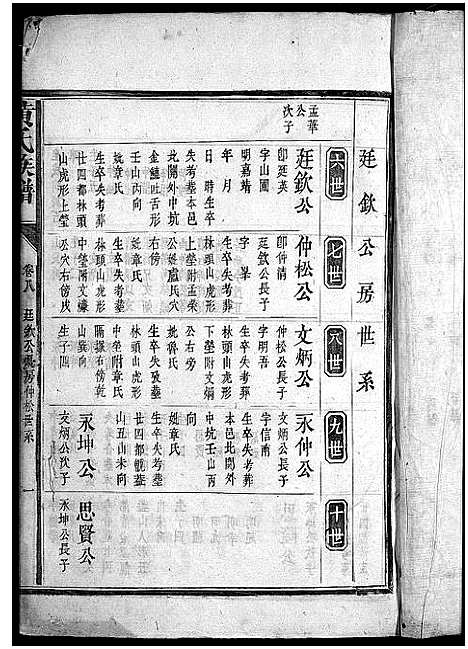 廷欽公房世系
六世
七世
八世
九世
十世
孟華
公
次子
廷欽公
卽廷英
字山圃
明嘉靖
年月
日時生卒
失考葬本邑
北關外中坑
金鐘吐舌形
壬山丙向
妣章氏
生卒失考葬
廿四都林頭
山虎形上塋
仲松公
卽仲清
廷欽公長子
字
生卒失考葬
林頭山虎形
上塋附孟榮
公妣盧氏穴
右傍
妣章氏
生卒失考葬
林頭山虎形
中塋爾文
公穴右傍
文炳公
仲松公長子
字明吾
生卒失考葬
林頭山虎形
下塋附文炳
公右旁
妣魯氏
生卒失考葬
林頭山虎形
中塋附章氏
隔壙右傍乾
山巽向
生子四
永仲公
文炳公長子
字信甫
生卒失考葬
本邑北關外
中坑壬山丙
向
妣章氏
生卒失考葬
廿四都
山丑山未向
永坤公
文炳公次子
思賢公
永坤公長子
黃氏族譜
卷八
廷欽公房仲松世系
一